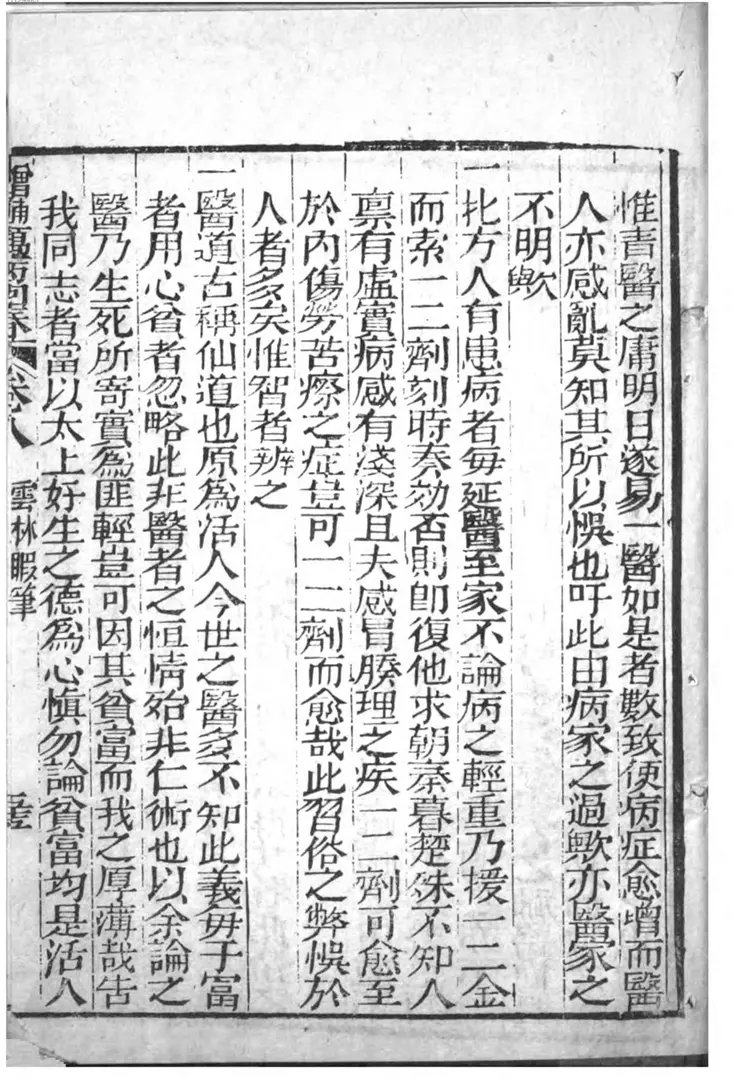 惟責醫之庸明日遂易一醫如是者數致使病症愈增而醫
人亦惑亂莫知其所以悞也吁此由病家之過歟亦醫家之
不明歟
一北方人有患病者每延醫至家不論病之輕重乃援一二金
而索一二劑刻時奏効否則即復他求朝秦暮楚殊不知人
稟有虛實病感有淺深且夫感冒腠理之疾一二劑可愈至
於內傷勞苦瘵之症豈可一二劑而愈哉此習俗之弊悞於
人者多矣惟智者辨之
一醫道古稱仙道也原為活人今世之醫多不知此義毋于富
者用心貧者忽略此非醫者之恒情殆非仁術也以余論之
醫乃生死所寄實為匪輕豈可因其貧富而我之厚薄哉告
我同志者當以太上好生之德為心慎勿論貧富均是活人
增補萬病回春 卷八 雲林暇筆